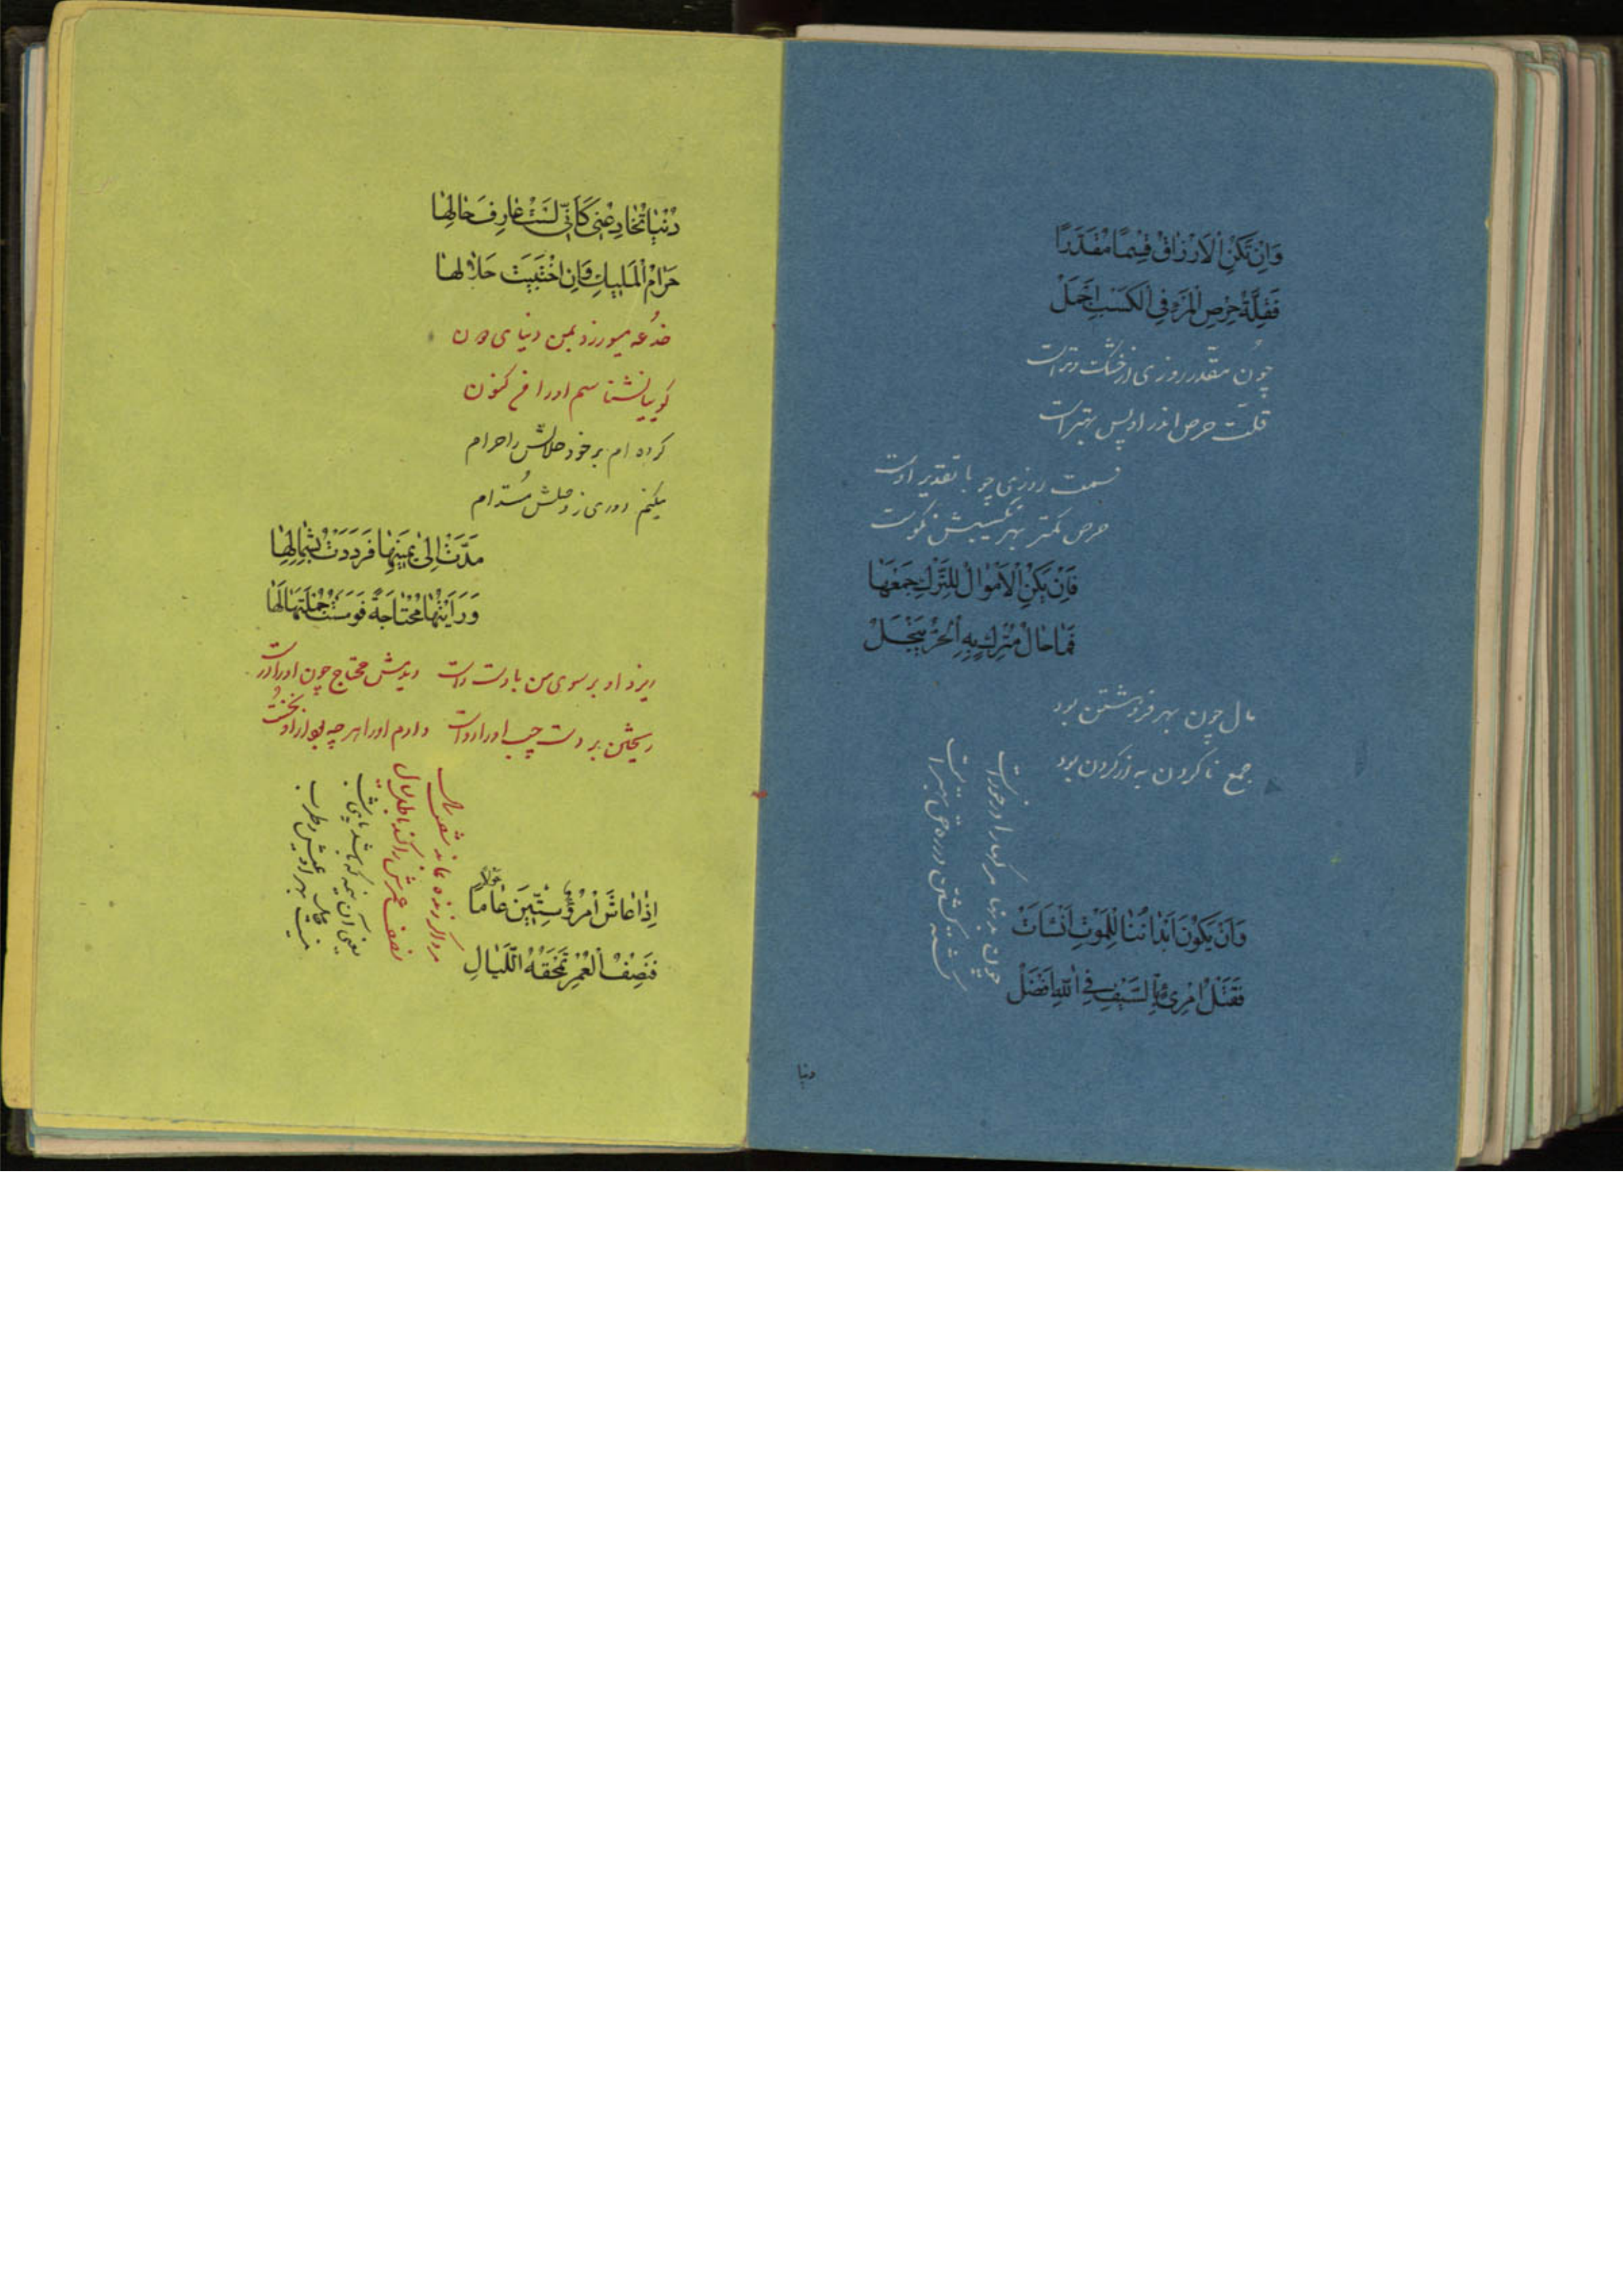 وَاِنْ تَكُنِ الْاَرْزٰاقُ قِسْمًا مُقَدَّرًا
فَقِلَّةُ حِرْصِ الْمَرْءِ فِی الْكَسْبِ اَجْمَلْ
چون مقدر روزی از خشک و تر است
قلت حرص اندر او پس بهتر است
قسمت روزی چو با تقدیر اوست
حرص کمتر بهر کسبش نکوست
فَاِنْ یَكُنِ الْاَمْوٰالُ لِلتَّرْكِ جَمْعُهٰا
فَمٰا حٰالُ مَتْرُكٍ بِهِ الْحُرُّ یَبْخَلْ
مال چون بهر فروشتن بود
جمع ناکردن به از کردن بود
وَاِنْ یَكُونُ اَبْدٰانُنٰا لِلْمَوْتِ اُنْشِاَتْ
فَقَتْلُ امْرِیءٍ بِالسَّیْفِ فِی اللّٰهِ اَفْضَلْ
چون بدنها مرگها را درخور است
کشته گشتن در ره حق بهتر است
دنیا
دُنْیٰا تُخٰادِعُنِی كَاَنِّی لَسْتُ عٰارِفَ حٰالِهٰا
حَرٰامُ الْمَلِیكِ وَاِن اجْتَبَیْتَ حَلٰالَهٰا
خدعه میورزد بمن دنیای دون
گوییا نشناسم او را فن کنون
کرده ام بر خود حلالش را حرام
میکنم دوری ز وصلش مستدام
مَدَّتْ اِلیٰ یَمِینِهٰا فَرَدَدْتُ بِشِمٰالِهٰا
وَرَاَیْتُهٰا مُحْتٰاجَةً فَوَهَبْتُ جُمْلَتَهٰا لَهٰا
او بر سوی من با دست راست دیدمش محتاج چون او را
بر دست چپ او را دادم او را هر چه بود از او نخست
اِذٰا عٰاشَ امْرُؤٌ سِتِّینَ عٰامًا
فَنِصْفُ الْعُمْرِ تَمْحَقُهُ اللَّیٰالِ
مرد اگر زنده بماند شصت سال
نصف عمرش را کند باطل لیال
یعنی آن نیمه که باشد
نیست بهر او عیش و طرب